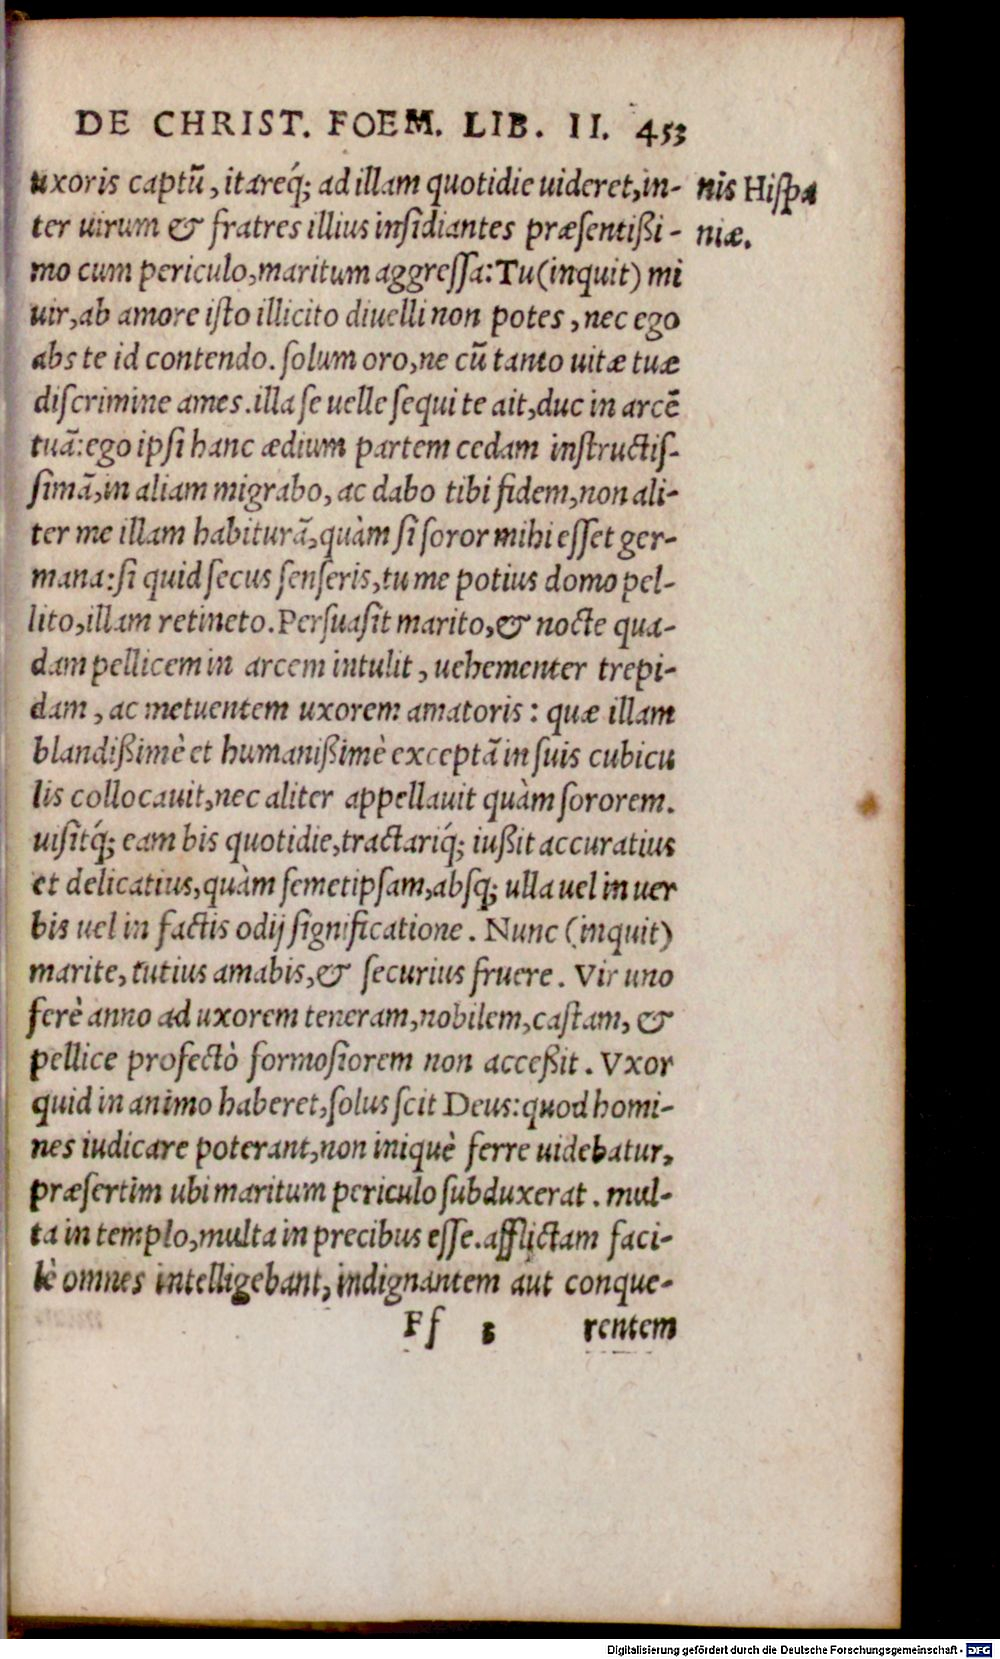 DE CHRIST. FOEM. LIB. II. 453
uxoris captū, itareq́; ad illam quotidie uideret, in-
ter uirum & fratres illius insidiantes præsentißi-
mo cum periculo, maritum aggressa: Tu (inquit) mi
uir, ab amore isto illicito diuelli non potes, nec ego
abs te id contendo. solum oro, ne cū tanto uitæ tuæ
discrimine ames. illa se uelle sequi te ait, duc in arcē
tuā: ego ipsi hanc ædium partem cedam instructis-
simā, in aliam migrabo, ac dabo tibi fidem, non ali-
ter me illam habiturā, quàm si soror mihi esset ger-
mana: si quid secus senseris, tu me potius domo pel-
lito, illam retineto. Persuasit marito, & nocte qua-
dam pellicem in arcem intulit, uehementer trepi-
dam, ac metuentem uxorem amatoris: quæ illam
blandißimè et humanißimè exceptā in suis cubicu
lis collocauit, nec aliter appellauit quàm sororem.
uisitq́; eam bis quotidie, tractariq́; iußit accuratius
et delicatius, quàm semetipsam, absq; ulla uel in uer
bis uel in factis odij significatione. Nunc (inquit)
marite, tutius amabis, & securius fruere. Vir uno
ferè anno ad uxorem teneram, nobilem, castam, &
pellice profectò formosiorem non acceßit. Vxor
quid in animo haberet, solus scit Deus: quod homi-
nes iudicare poterant, non iniquè ferre uidebatur,
præsertim ubi maritum periculo subduxerat. mul-
ta in templo, multa in precibus esse. afflictam faci-
lè omnes intelligebant, indignantem aut conque-
Ff 5 rentem
nis Hispa
niæ.
Digitalisierung gefördert durch die Deutsche Forschungsgemeinschaft - DFG